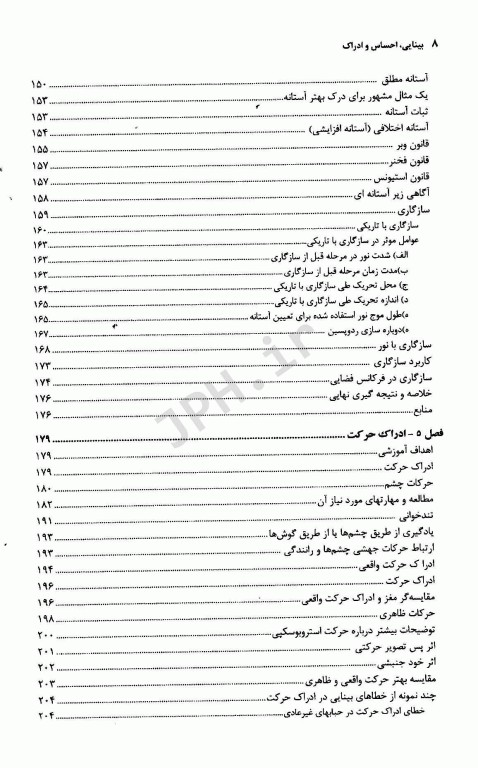 ۸ بینایی، احساس و ادراک
آستانه مطلق ۱۵۰
یک مثال مشهور برای درک بهتر آستانه ۱۵۳
ثبات آستانه ۱۵۳
آستانه اختلافی (آستانه افزایشی) ۱۵۴
قانون وبر ۱۵۵
قانون فخنر ۱۵۷
قانون استیونس ۱۵۷
آگاهی زیر آستانه ای ۱۵۸
سازگاری ۱۵۹
سازگاری با تاریکی ۱۶۰
عوامل موثر در سازگاری با تاریکی ۱۶۳
الف) شدت نور در مرحله قبل از سازگاری ۱۶۳
ب)مدت زمان مرحله قبل از سازگاری ۱۶۳
ج) محل تحریک طی سازگاری با تاریکی ۱۶۴
د) اندازه تحریک طی سازگاری با تاریکی ۱۶۵
ه)طول موج نور استفاده شده برای تعیین آستانه ۱۶۵
ه)دوباره سازی ردوپسین ۱۶۷
سازگاری با نور ۱۶۸
کاربرد سازگاری ۱۷۳
سازگاری در فرکانس فضایی ۱۷۴
خلاصه و نتیجه گیری نهایی ۱۷۶
منابع ۱۷۶
فصل ۵ - ادراک حرکت ۱۷۹
اهداف آموزشی ۱۷۹
ادراک حرکت ۱۷۹
حرکات چشم ۱۸۰
مطالعه و مهارتهای مورد نیاز آن ۱۸۲
تندخوانی ۱۹۱
یادگیری از طریق چشم‌ها یا از طریق گوش‌ها ۱۹۳
ارتباط حرکات جهشی چشم‌ها و رانندگی ۱۹۳
ادرا ک حرکت واقعی ۱۹۴
ادراک حرکت ۱۹۶
مقایسه‌گر مغز و ادراک حرکت واقعی ۱۹۶
حرکات ظاهری ۱۹۸
توضیحات بیشتر درباره حرکت استروبوسکپی ۲۰۰
اثر پس تصویر حرکتی ۲۰۱
اثر خود جنبشی ۲۰۲
مقایسه بهتر حرکت واقعی و ظاهری ۲۰۳
چند نمونه از خطاهای بینایی در ادراک حرکت ۲۰۴
خطای ادراک حرکت در حبابهای غیرعادی ۲۰۴
JPH.ir